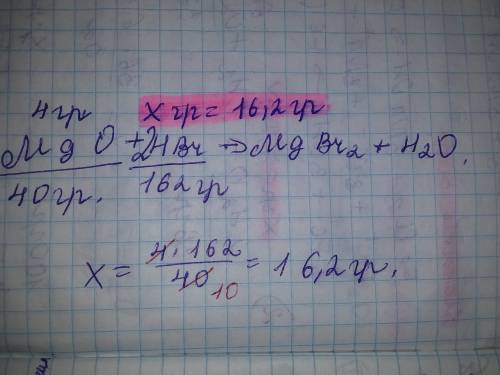 4гр x гр = 16,2 гр
MgO + 2HBr → MgBr₂ + H₂O.
40гр. 162 гр
x = 4 · 162 / 40 = 16,2 гр.
10